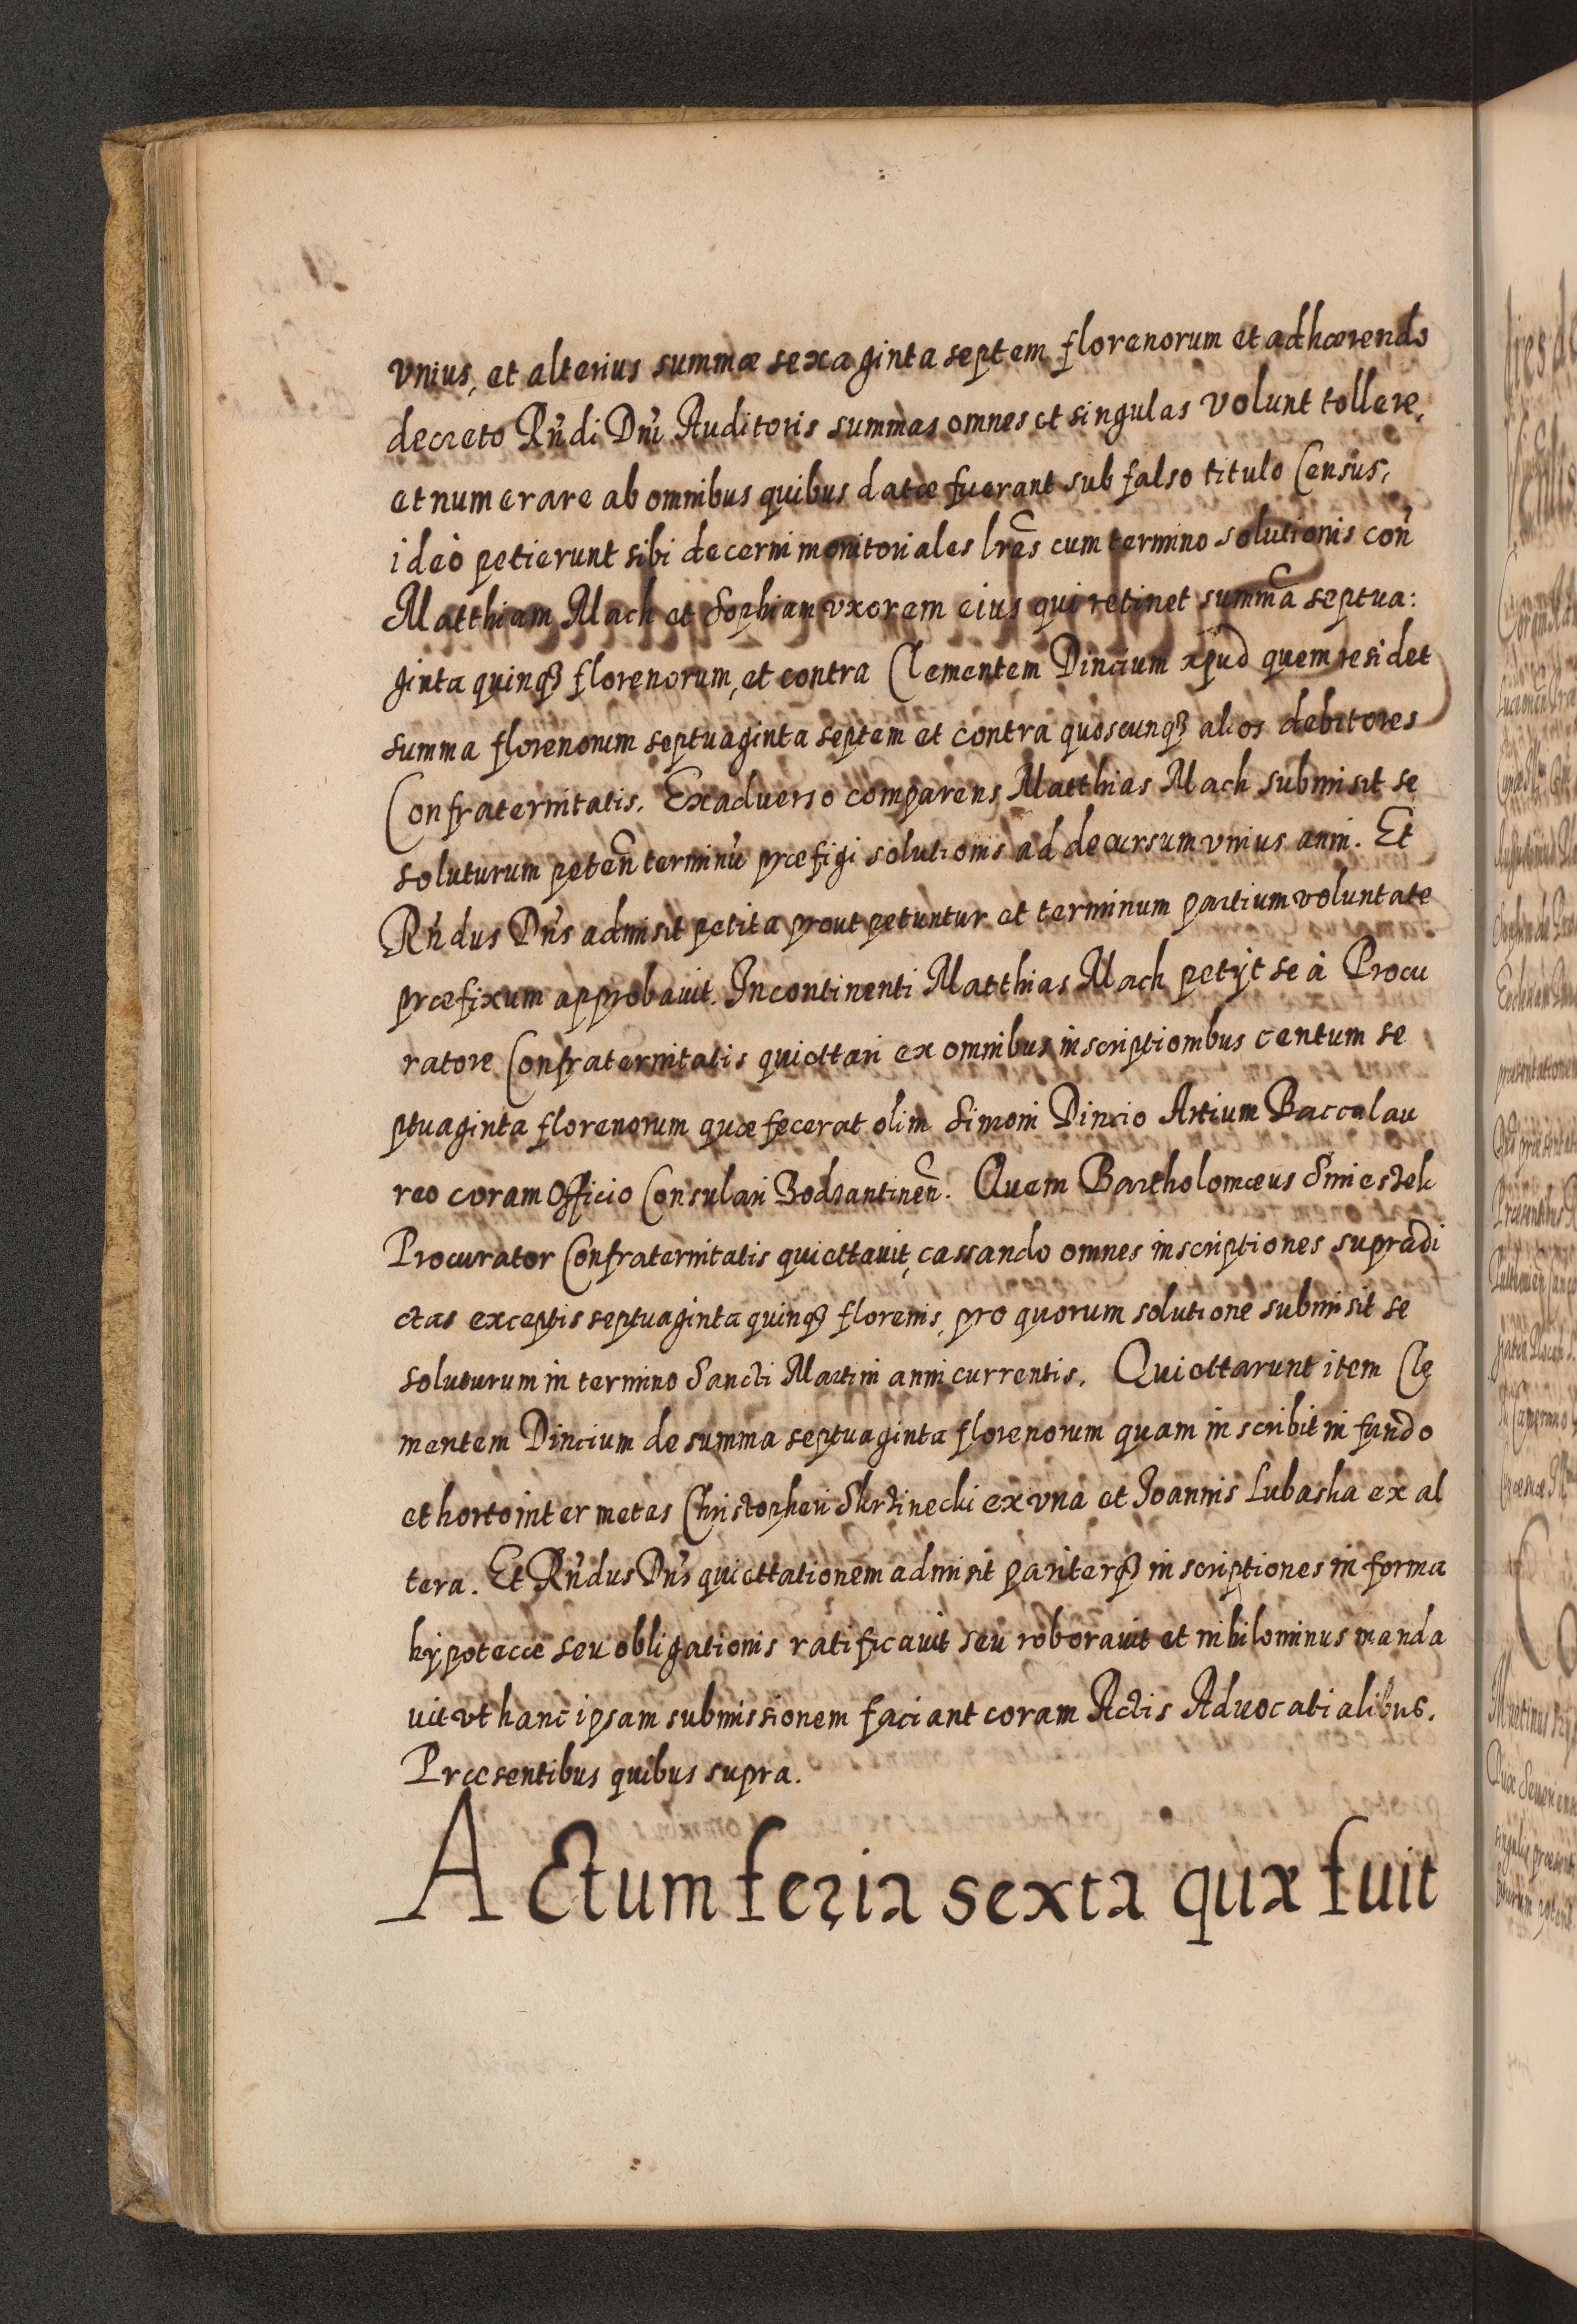 vnius, et alterius summæ sexaginta septem florenorum et adhærendo
decreto Rñdi Dñi Auditoris summas omnes et singulas volunt tollere,
et numerare ab omnibus quibus datæ fuerant sub falso titulo Census,
ideò petierunt sibi decerni monitoriales lrẽs cum termino solutionis coñ
Matthiam Mach et Sophiam vxorem eius qui retinet summã septua:
ginta quinqȝ florenorum, et contra Clementem Dincium apud quem residet
summa florenorum septuaginta septem et contra quoscunqȝ alios debitores
Confraternitatis. Ex aduerso comparens Matthias Mach submisit se
soluturum peteñ terminũ præfigi solutionis ad decursum vnius anni. Et
Rñdus Dñs admisit petita prout petuntur et terminum partium voluntate
præfixum approbauit. Incontinenti Matthias Mach petijt se à Procu
ratore Confraternitatis quiettari ex omnibus inscriptionibus centum se
ptuaginta florenorum quæ fecerat olim Simoni Dincio Artium Baccalau
reo coram Officio Consulari Bodzantineñ. Quem Bartholomæus Smiestek
Procurator Confraternitatis quiettauit, cassando omnes inscriptiones supradi
ctas exceptis septuaginta quinqȝ florenis, pro quorum solutione submisit se
soluturum in termino Sancti Martini anni currentis. Quiettarunt item Cle
mentem Dincium de summa septuaginta florenorum quam inscribit in fundo
et horto inter metas Christopheri Skrzinecki ex vna et Joannis Lubaska ex al
tera. Et Rñdus Dñs quiettationem admisit pariterqȝ inscriptiones in forma
hÿpotecæ seu obligationis ratificauit seu roborauit et nihilominus manda
uit vt hanc ipsam submissionem faciant coram Actis Aduocatialibus.
Præsentibus quibus supra.
Actum feria sexta quæ fuit